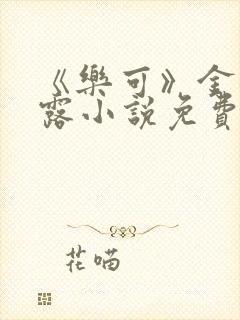 《樂可》金
露小說免費
花喵